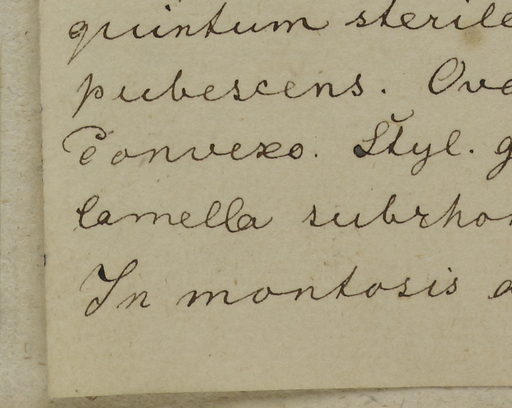 quintum sterile
pubescens. Ova
Convexo. Styl. g
lamella subrhom
In montosis